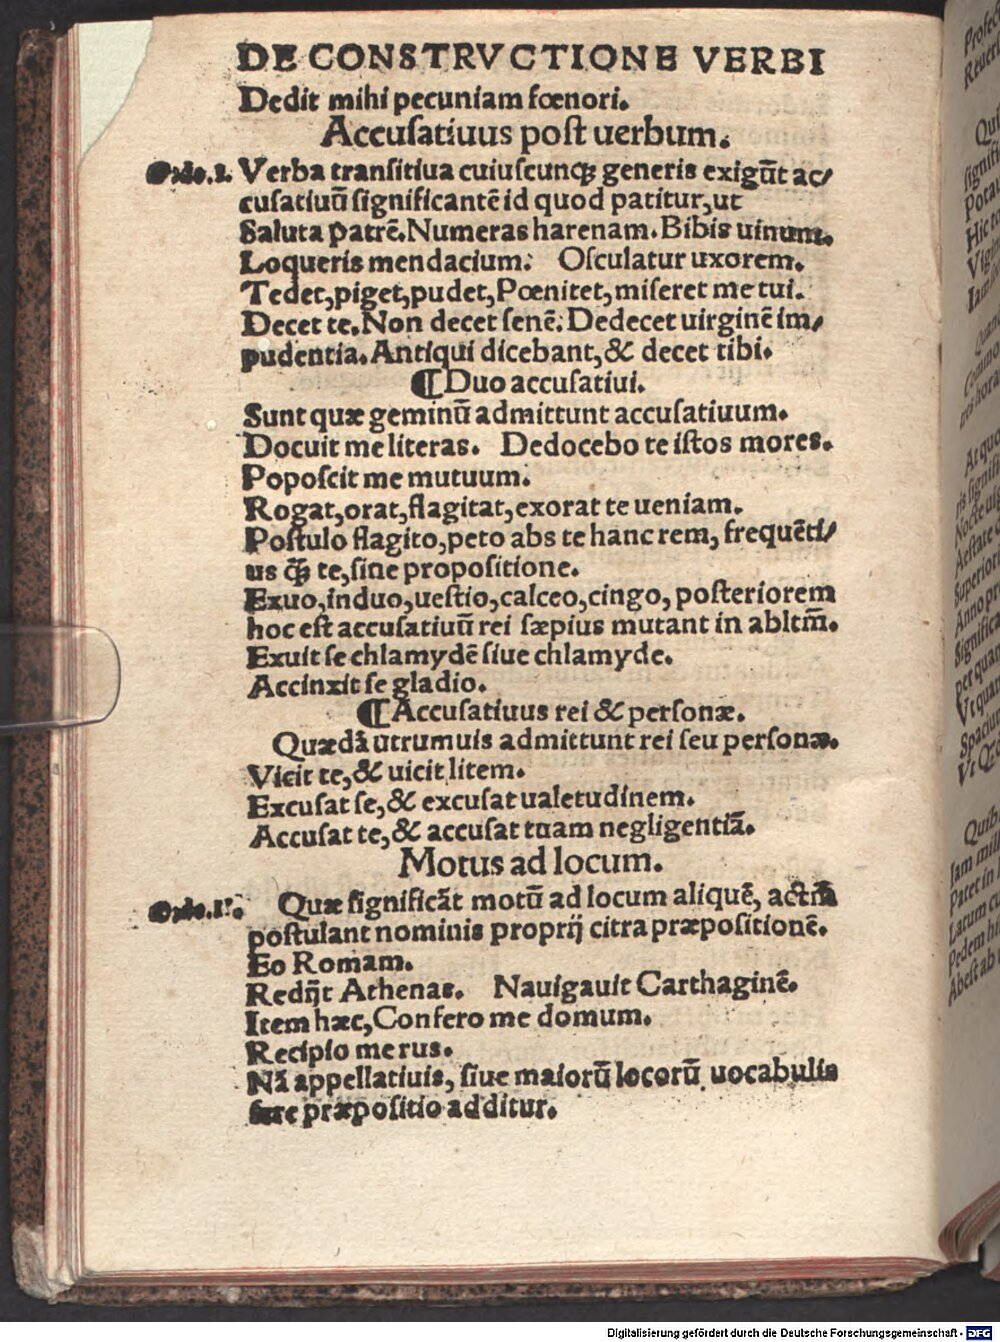 DE CONSTRVCTIONE VERBI
Dedit mihi pecuniam fœnori.
Accuſatiuus poſt uerbum.
Ordo.I. Verba tranſitiua cuiuſcunqꝫ generis exigūt ac/
cuſatiuū ſignificantē id quod patitur, ut
Saluta patrē. Numeras harenam. Bibis uinum.
Loqueris mendacium. Oſculatur uxorem.
Tedet, piget, pudet, Pœnitet, miſeret me tui.
Decet te. Non decet ſenē. Dedecet uirginē im/
pudentia. Antiqui dicebant, & decet tibi.
¶ Duo accuſatiui.
Sunt quæ geminū admittunt accuſatiuum.
Docuit me literas. Dedocebo te iſtos mores.
Popoſcit me mutuum.
Rogat, orat, flagitat, exorat te ueniam.
Poſtulo flagito, peto abs te hanc rem, frequēti/
us ꝙꝫ te, ſine propoſitione.
Exuo, induo, ueſtio, calceo, cingo, poſteriorem
hoc eſt accuſatiuū rei ſæpius mutant in abltm̄.
Exuit ſe chlamydē ſiue chlamyde.
Accinxit ſe gladio.
¶ Accuſatiuus rei & perſonæ.
Quædā utrumuis admittunt rei ſeu perſonæ.
Vicit te, & uicit litem.
Excuſat ſe, & excuſat ualetudinem.
Accuſat te, & accuſat tuam negligentiā.
Motus ad locum.
Ordo.II. Quæ ſignificāt motū ad locum aliquē, actm̄
poſtulant nominis proprij citra præpoſitionē.
Eo Romam.
Redijt Athenas. Nauigauit Carthaginē.
Item hæc, Confero me domum.
Recipio me rus.
Nā appellatiuis, ſiue maiorū locorū uocabulis
fere præpoſitio additur.
Digitalisierung gefördert durch die Deutsche Forschungsgemeinschaft - DFG